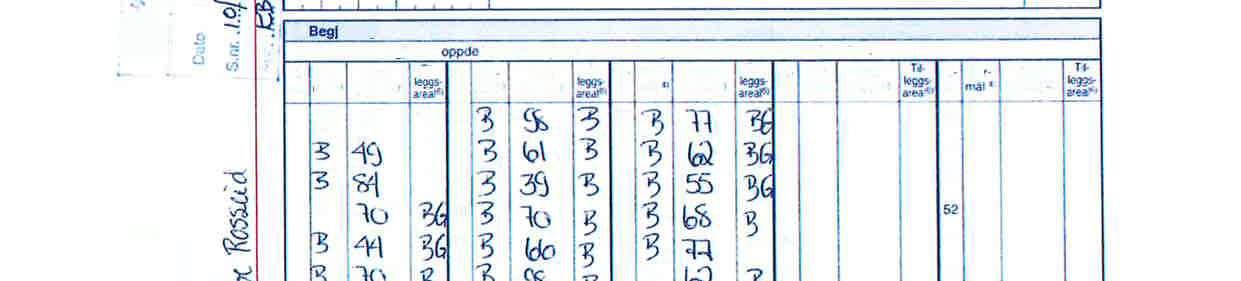 Begj
oppde
leggs- areal leggs- areal leggs- areal Til- leggs- areal mål Til- leggs- areal
B 98 B B 77 BG
B 49 B 61 B B 62 BG
B 84 B 39 B B 55 BG
70 BG B 70 B B 68 B 52
B 44 BG B 60 B B 77
B 70 B B 98 B 62 B
Dato
S.nr.
Rosseid